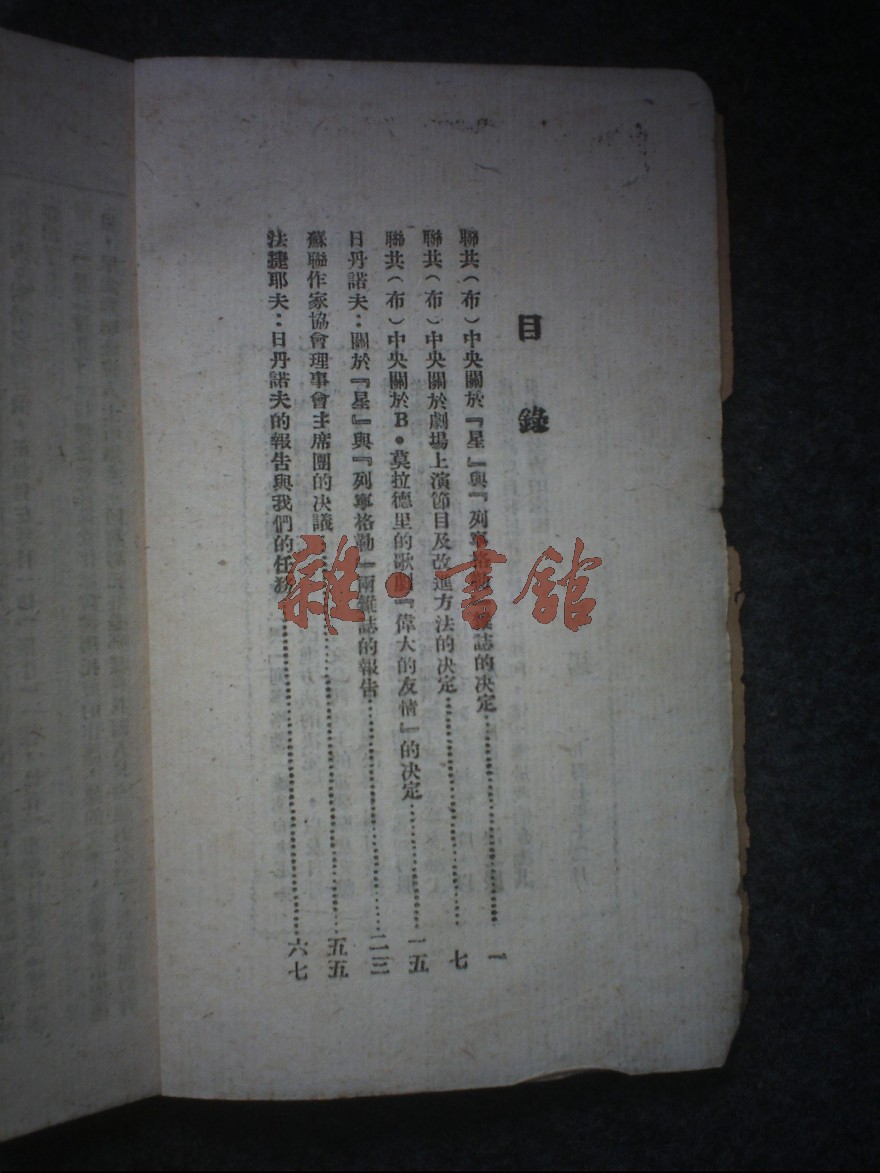 目錄
聯共(布)中央關於『星』與『列寧格勒』雜誌的决定…………一
聯共(布)中央關於劇場上演節目及改進方法的决定…………七
聯共(布)中央關於B•莫拉德里的歌劇『偉大的友情』的决定…………一五
日丹諾夫:關於『星』與『列寧格勒』兩雜誌的報告…………二三
蘇聯作家協會理事會主席團的决議…………五五
法捷耶夫:日丹諾夫的報告與我們的任務…………六七
雜·書館